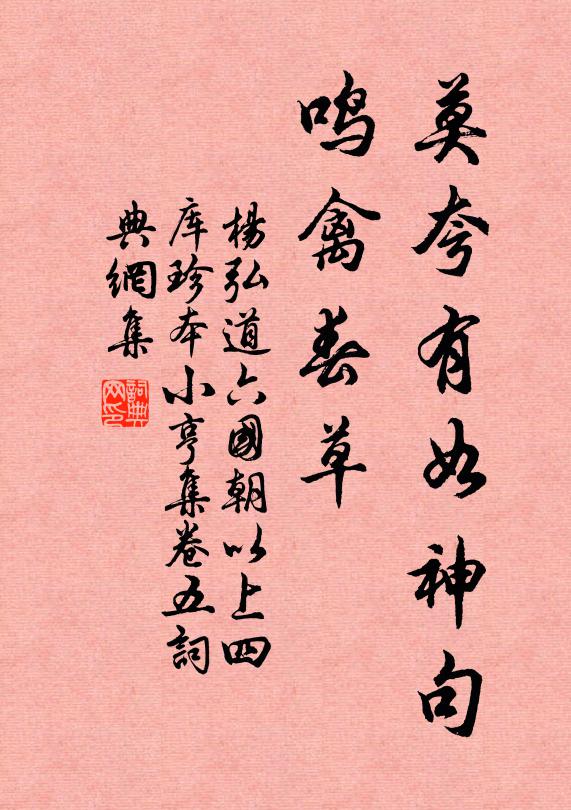 莫夸有如神句
鸣禽春草
楊弘道六國朝以上四
库珍本小亨集卷五詞
典網集
詞典网印